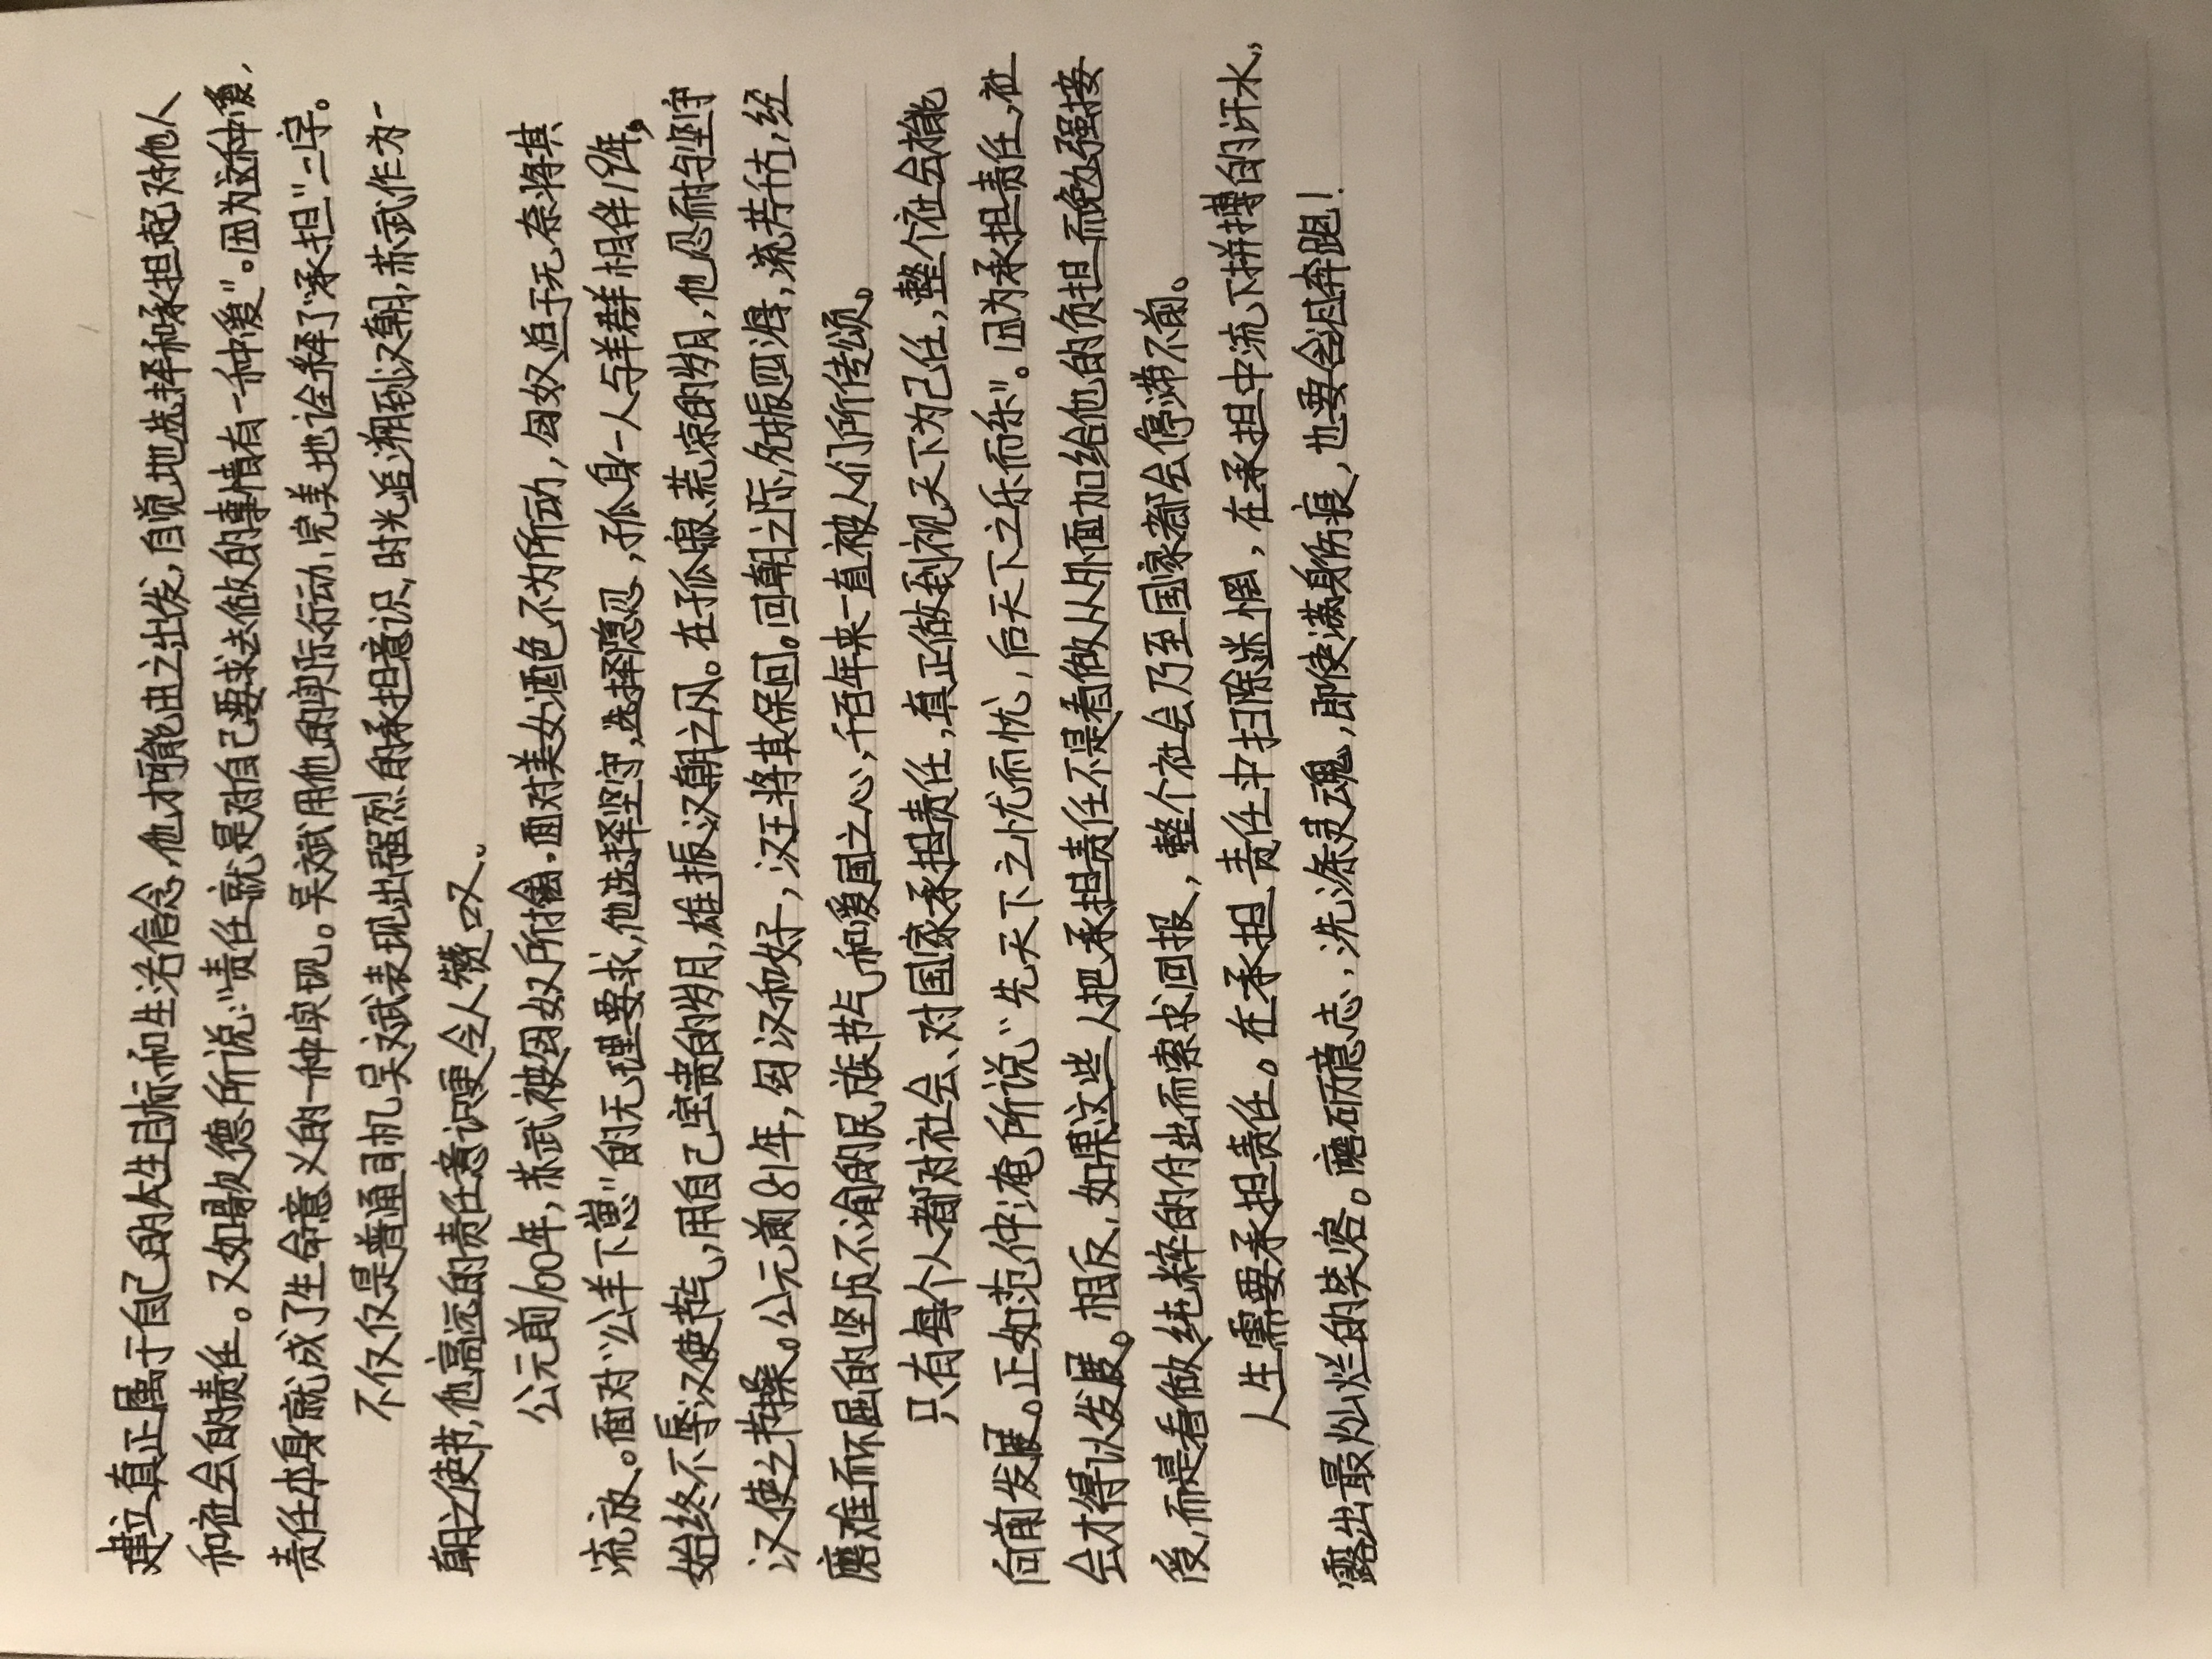 建立真正属于自己的人生目标和生活信念,他才可能由之出发,自觉地选择和承担起对他人
和社会的责任。又如歌德所说:“责任就是对自己要求去做的事情有一种爱”。因为这种爱,
责任本身就成了生命意义的一种实现。吴斌用他的实际行动,完美地诠释了“承担”二字。
不仅仅是普通司机吴斌表现出强烈的承担意识,时光追溯到汉朝,苏武作为一
朝之使节,他高远的责任意识更令人赞叹。
公元前100年,苏武被匈奴所擒,面对美女酒色不为所动,匈奴迫于无奈将其
流放。面对“公羊下崽”的无理要求,他选择坚守,选择隐忍,孤身一人与羊群相伴19年,
始终不辱汉使节气,用自己宝贵的岁月,雄振汉朝之风。在孤寂荒凉的岁月,他忍耐与坚守
汉使之节操。公元前81年,匈汉和好,汉王将其保回。回朝之际,名振四海,流芳千古,经
磨难而不屈的坚贞不渝的民族节气和爱国之心,千百年来一直被人们所传颂。
只有每个人都对社会、对国家承担责任,真正做到视天下为己任,整个社会才能
向前发展。正如范仲淹所说“先天下之忧而忧,后天下之乐而乐”。因为承担责任,社
会才得以发展。相反,如果这些人把承担责任不是看做从外面加给他的负担而勉强接
受,而是看做纯粹的付出而索求回报,整个社会乃至国家都会停滞不前。
人生需要承担责任。在承担责任中扫除迷惘,在承担中流下拼搏的汗水,
露出最灿烂的笑容。磨砺意志,洗涤灵魂,即使满身伤痕,也要含泪奔跑!